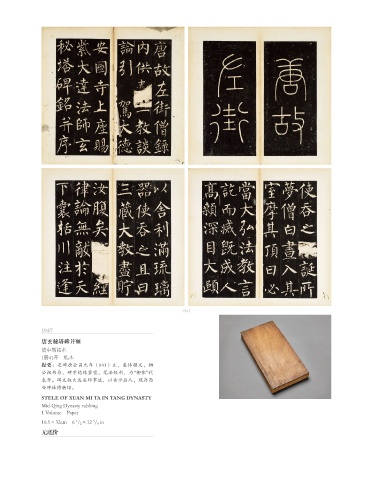 唐故
左街
唐故左街僧錄
內供 教談
論引 駕大德
安國寺上座賜
紫大達法師玄
秘塔碑銘并序
使吞之 誕所
夢僧白晝入其
室摩其頂曰必
當大弘法教言
訖而滅既成人
高顙深目大頤
以舍利滿琉璃
器使吞之且曰
三藏大教盡貯
汝腹矣 經
律論無敵於天
下囊括川注逢
1947
唐玄秘塔碑并額
清中期拓本
提要：
STELE OF XUAN MI TA IN TANG DYNASTY
Mid-Qing Dynasty rubbing
1 Volume Paper
16.5×32cm
无底价